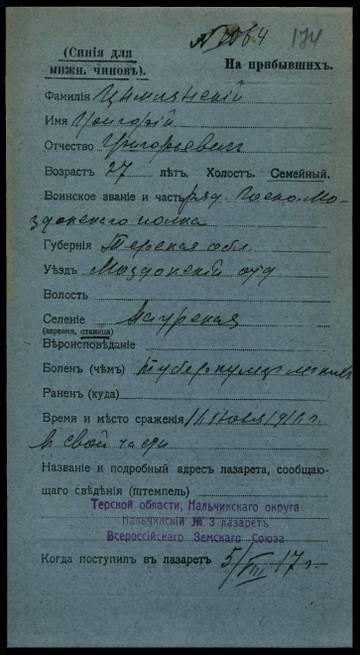 № 1064 174
(Синія для
нижн. чиновъ).
На прибывшихъ.
Фамилія Цимлянскій
Имя Григорій
Отчество Григорьевич
Возрастъ 27 лѣтъ. Холост. Семейный.
Воинское званіе и часть ряд.
полка
Губернія Терская обл.
Уѣздъ Моздокскій отд
Волость
Селеніе Наурская
(деревня, станица)
Вѣроисповѣданіе
Боленъ (чѣмъ) туберкулез легких
Раненъ (куда)
Время и мѣсто сраженія
в свой части
Названіе и подробный адресъ лазарета, сообщаю-
щаго свѣдѣнія (штемпель)
Терской области, Нальчикскаго округа
Нальчикскій № 3 лазаретъ
Всероссійскаго Земскаго Союза
Когда поступил въ лазаретъ 5/VIII 17 г.